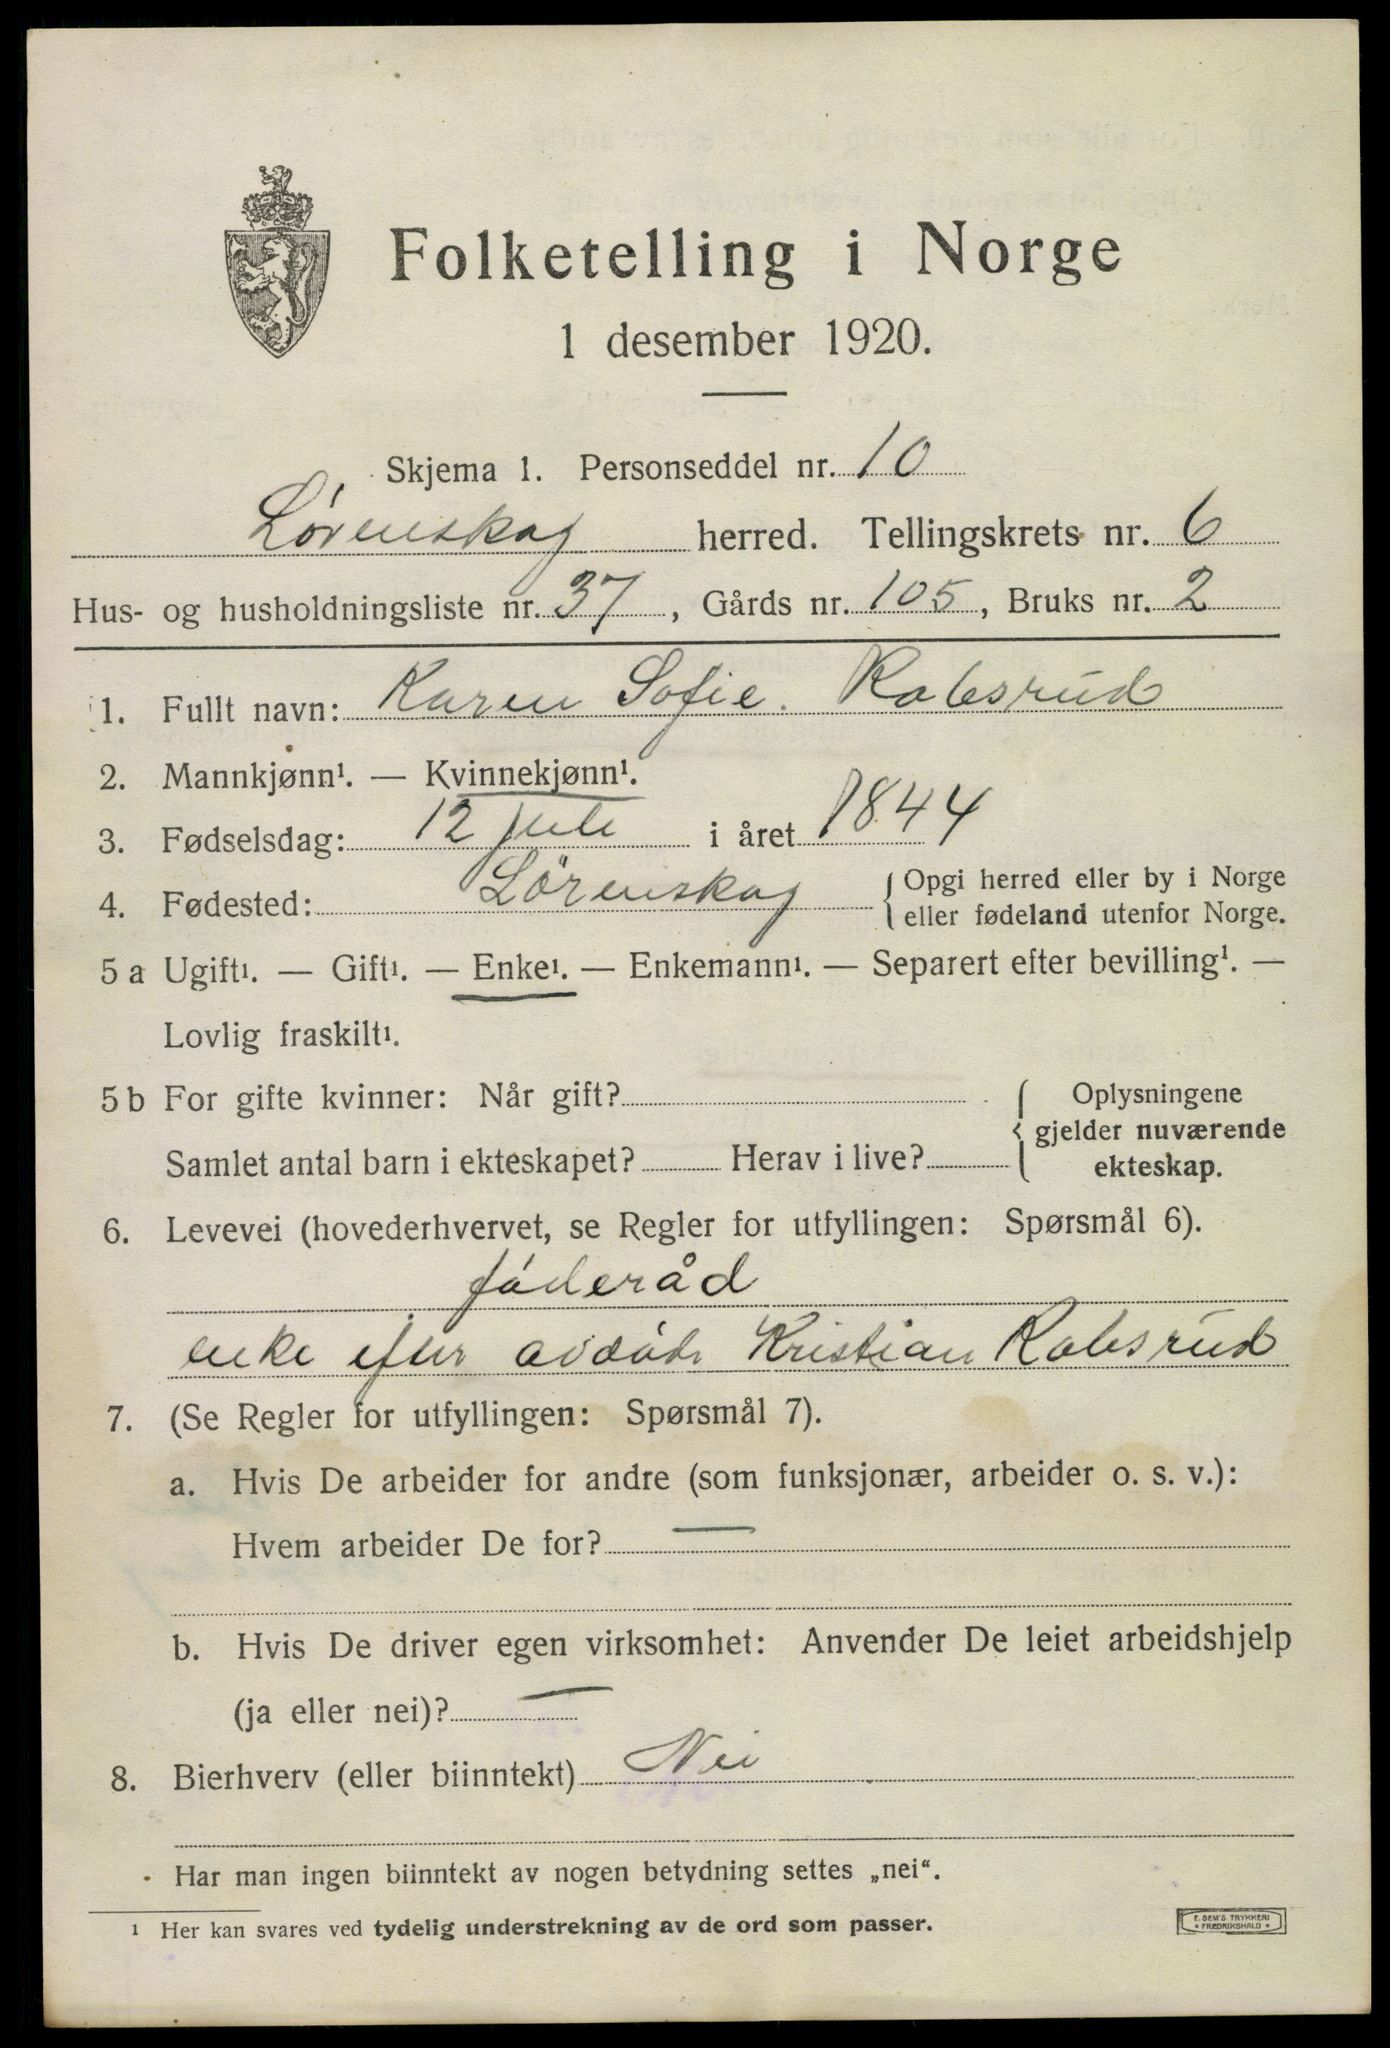 Folketelling i Norge
1 desember 1920.
Skjema 1. Personseddel nr. 10
Lørenskog herred. Tellingskrets nr. 6
Hus- og husholdningsliste nr. 37, Gårds nr. 105, Bruks nr. 2
1. Fullt navn: Karen Sofie. Robsrud
2. Mannkjønn¹. — Kvinnekjønn¹.
3. Fødselsdag: 12 juli i året 1844
4. Fødested: Lörenskog { Opgi herred eller by i Norge
eller fødeland utenfor Norge.
5 a Ugift¹. — Gift¹. — Enke¹. — Enkemann¹. — Separert efter bevilling¹. —
Lovlig fraskilt¹.
5 b For gifte kvinner: Når gift? { Oplysningene
gjelder nuværende
Samlet antal barn i ekteskapet? Herav i live? ekteskap.
6. Levevei (hovederhvervet, se Regler for utfyllingen: Spørsmål 6).
føderåd
enke efter avdøde Kristian Robsrud
7. (Se Regler for utfyllingen: Spørsmål 7).
a. Hvis De arbeider for andre (som funksjonær, arbeider o. s. v.):
Hvem arbeider De for? —
b. Hvis De driver egen virksomhet: Anvender De leiet arbeidshjelp
(ja eller nei)? —
8. Bierhverv (eller biinntekt) Nei
Har man ingen biinntekt av nogen betydning settes „nei“.
¹ Her kan svares ved tydelig understrekning av de ord som passer.
E. SEM'S TRYKKERI
• FREDRIKSHALD •